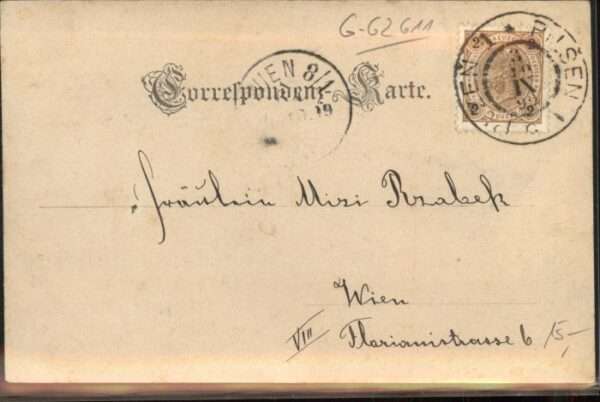 G-G2611
PILSEN 1
WIEN 8/1
Correspondenz-Karte.
Fräulein Mizi Rzabek
Wien
VIII Florianistrasse 6
15,-